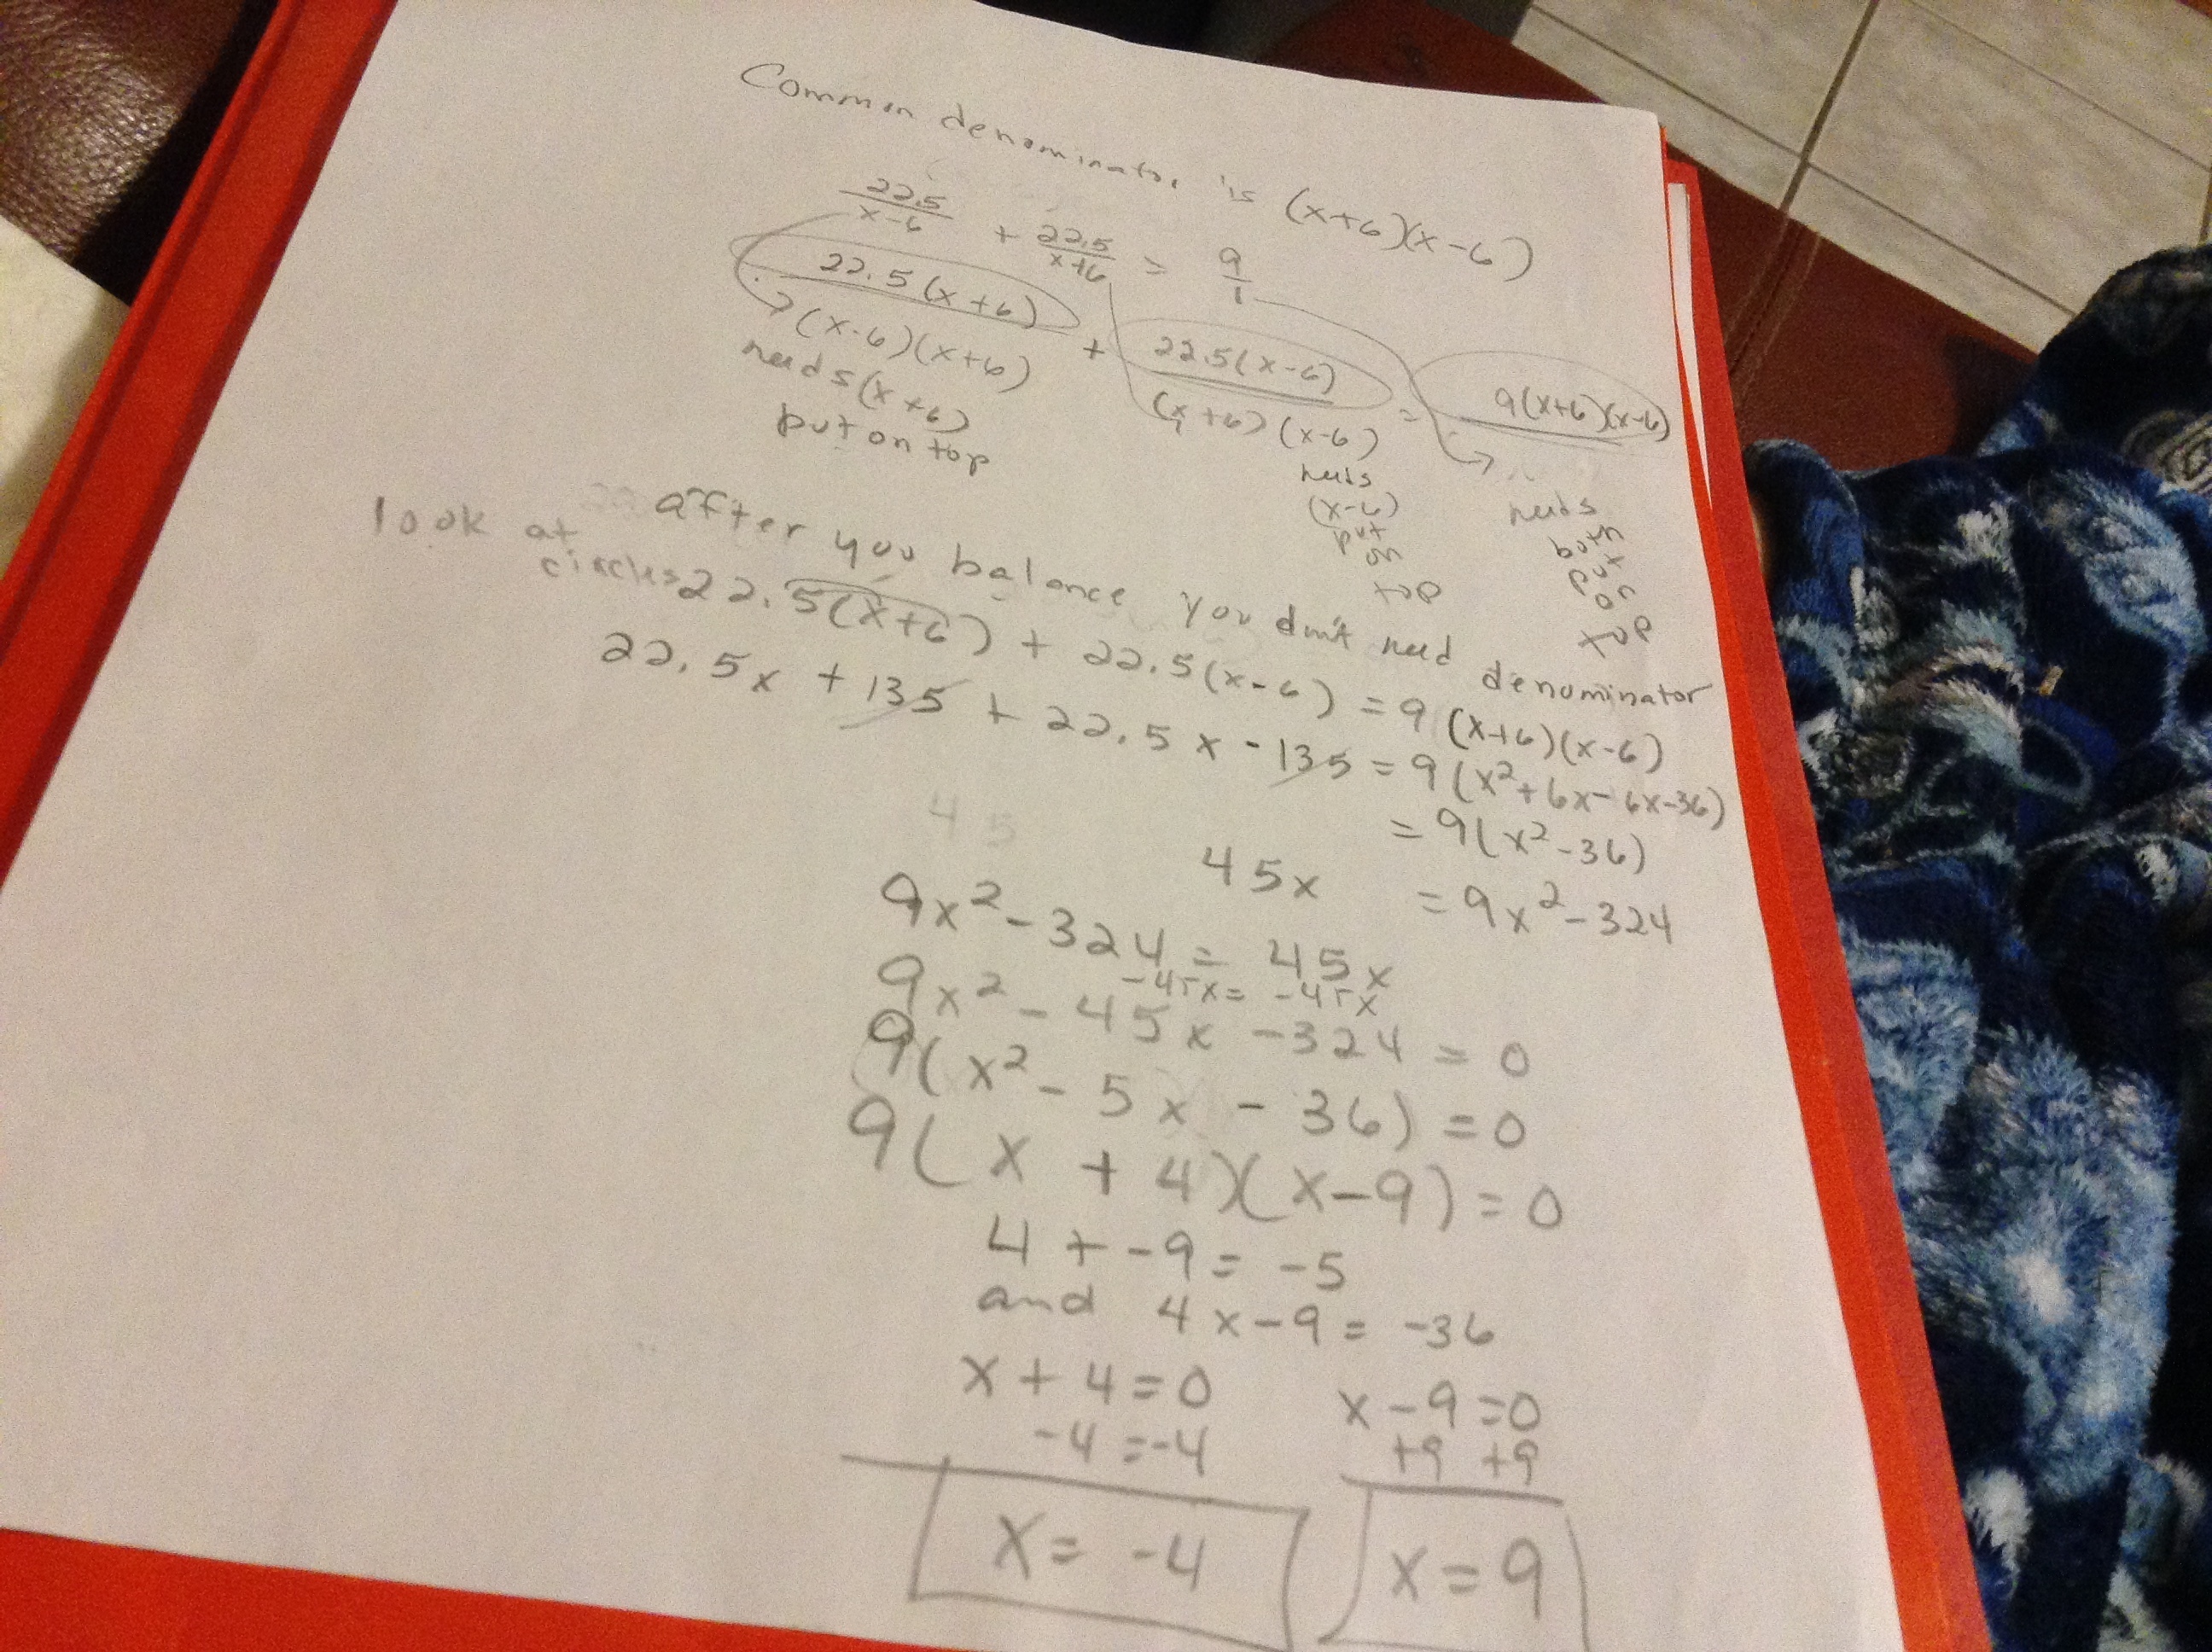 Common denominator is (x+6)(x-6)
22.5/x-6 + 22.5/x+6 = 9/1
22.5(x+6)/(x-6)(x+6) + 22.5(x-6)/(x+6)(x-6) = 9(x+6)(x-6)
needs (x+6)
put on top
needs
(x-6)
put
on
top
needs
both
put
on
top
look at
circles
after you balance you don't need denominator
22.5(x+6) + 22.5(x-6) = 9(x+6)(x-6)
22.5x + 135 + 22.5x - 135 = 9(x²+6x-6x-36)
= 9(x²-36)
45
45x = 9x²-324
9x²-324 = 45x
-45x = -45x
9x² - 45x - 324 = 0
9(x² - 5x - 36) = 0
9(x + 4)(x-9) = 0
4 + -9 = -5
and 4 x -9 = -36
x + 4 = 0
-4 = -4
x = -4
x - 9 = 0
+9 +9
x = 9